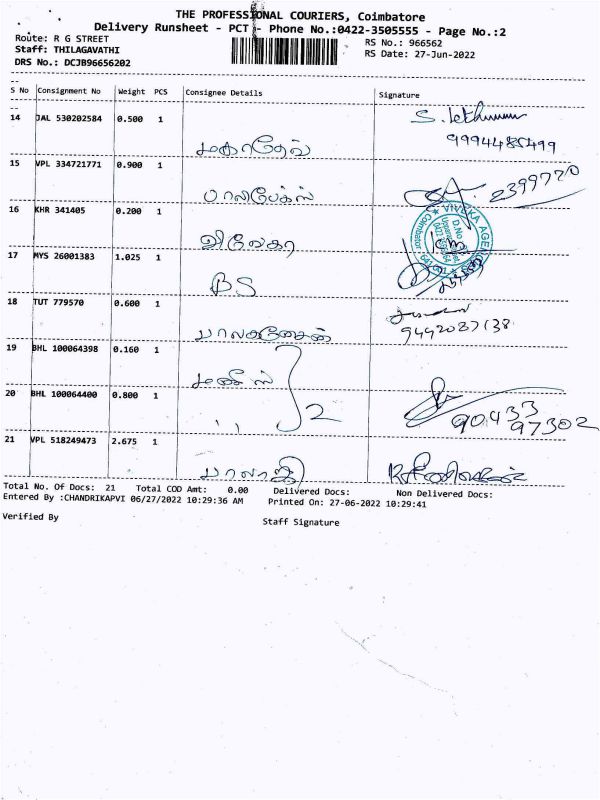 THE PROFESSIONAL COURIERS, Coimbatore
Delivery Runsheet - PCT - Phone No.:0422-3505555 - Page No.:2
Route: R G STREET
RS No.: 966562
Staff: THILAGAVATHI
RS Date: 27-Jun-2022
DRS No.: DCJB96656202
S No Consignment No Weight PCS Consignee Details Signature
14 JAL 530202584 0.500 1
மகாதேவ்
15 VPL 334721771 0.900 1
பாலிபேக்ஸ் 2399720
16 KHR 341405 0.200 1
விவேகா
VIVEKA AGEN
Coimbator
17 MYS 26001383 1.025 1
BS
18 TUT 779570 0.600 1
19 BHL 100064398 0.160 1
20 BHL 100064400 0.800 1
,, 2 90433
97302
21 VPL 518249473 2.675 1
பாலாஜி
Total No. Of Docs: 21 Total COD Amt: 0.00 Delivered Docs: Non Delivered Docs:
Entered By :CHANDRIKAPVI 06/27/2022 10:29:36 AM Printed On: 27-06-2022 10:29:41
Verified By Staff Signature